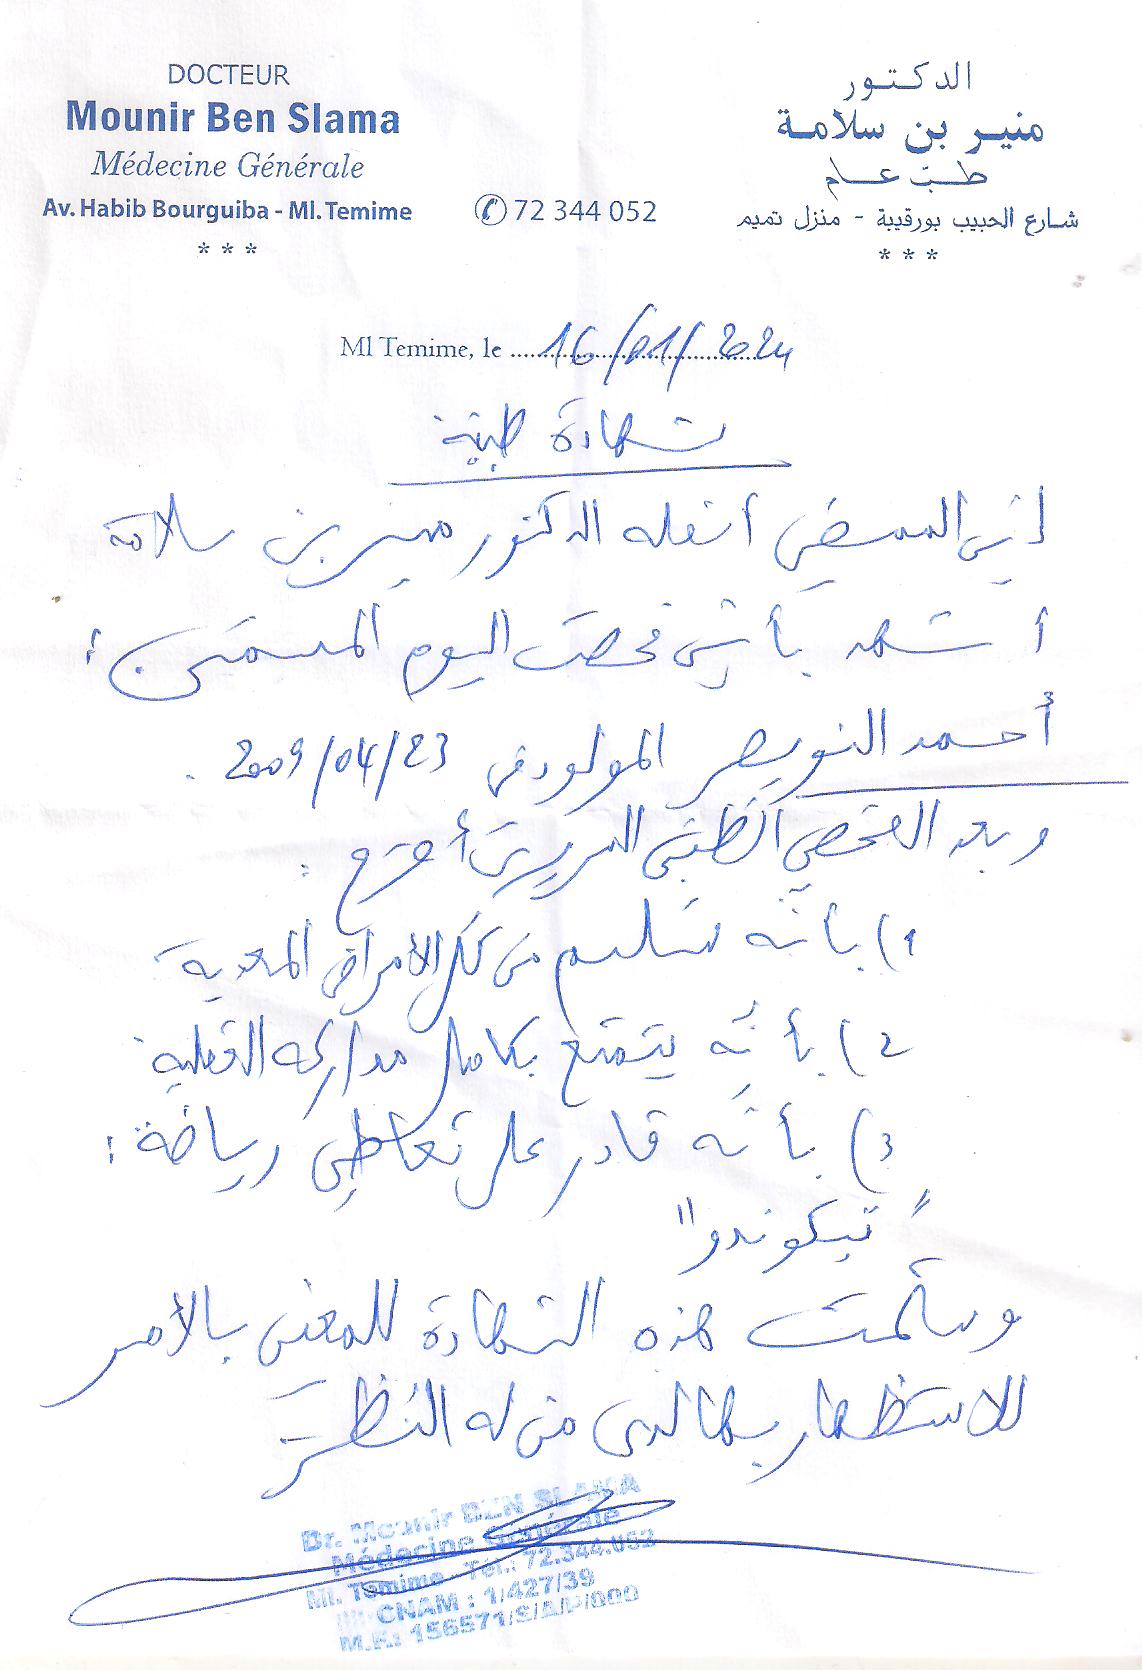 DOCTEUR
Mounir Ben Slama
Médecine Générale
Av. Habib Bourguiba - Ml. Temime
* * *
72 344 052
الدكتور
منير بن سلامة
طب عام
شارع الحبيب بورقيبة - منزل تميم
* * *
Ml Temime, le 16/01/2024
شهادة طبية
إني الممضي أسفله الدكتور منير بن سلامة
أشهد بأني فحصت اليوم المسمى :
أحمد النويصر المولود في 23/04/2009 .
وبعد الفحص الطبي السريري أصرح :
1) بأنه سليم من كل الأمراض المعدية
2) بأنه يتمتع بكامل مداركه العقلية
3) بأنه قادر على تعاطي رياضة :
"تيكوندو"
وسلمت هذه الشهادة للمعني بالأمر
للاستظهار بها لدى من له النظر
Dr. Mounir BEN SLAMA
Médecine Générale
Ml. Temime - Tél.: 72.344.052
CNAM : 1/427/39
M.F.: 156571/S/A/P/000